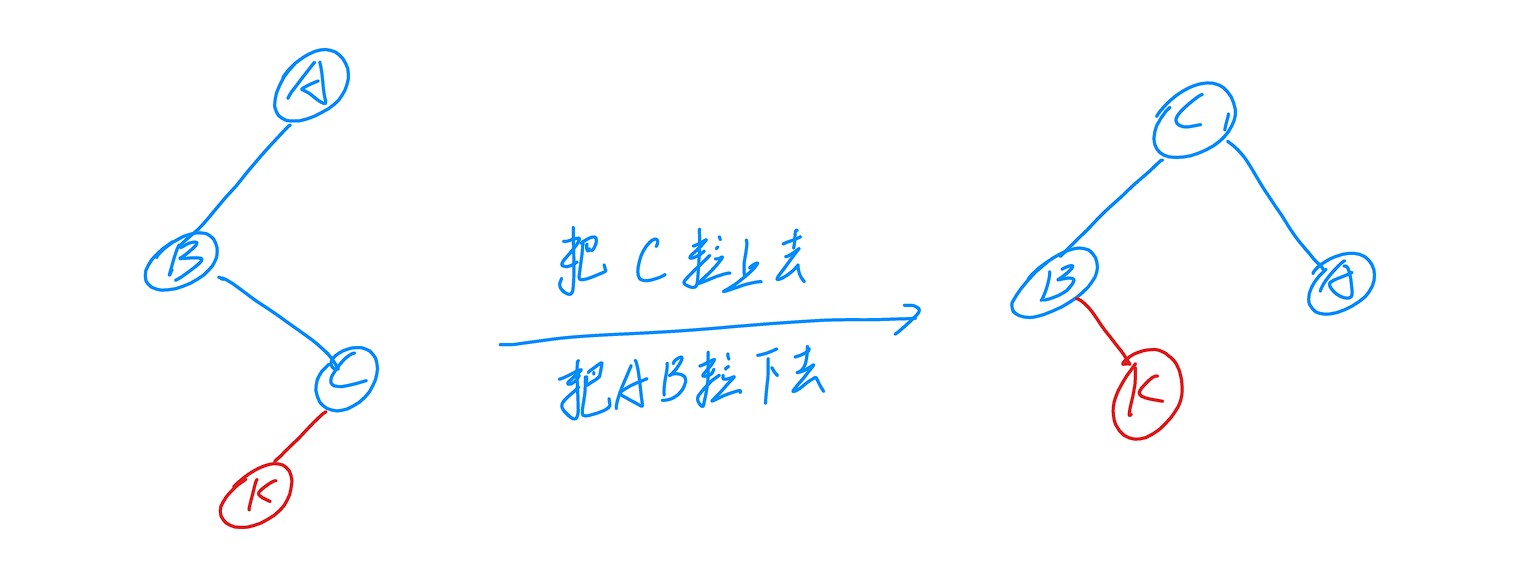 A
B
C
K
把 C 拉上去
把AB拉下去
C
B
A
K